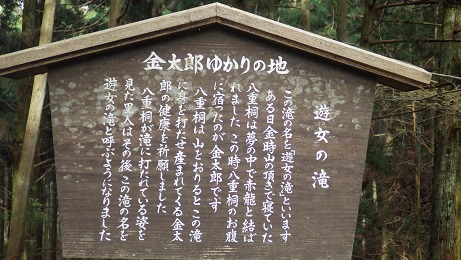 金太郎ゆかりの地
遊女の滝
この滝の名を「遊女の滝」といいます
ある日金時山の頂きで寝ていた
八重桐は夢の中で赤龍と結ば
れました この時八重桐のお腹
に宿ったのが金太郎です
八重桐は 山をおりるとこの滝
に身を打たせ産まれてくる金太
郎の健康を祈願しました
八重桐が滝に打たれている姿を
見た里人はその後 この滝の名を
遊女の滝と呼ぶようになりました